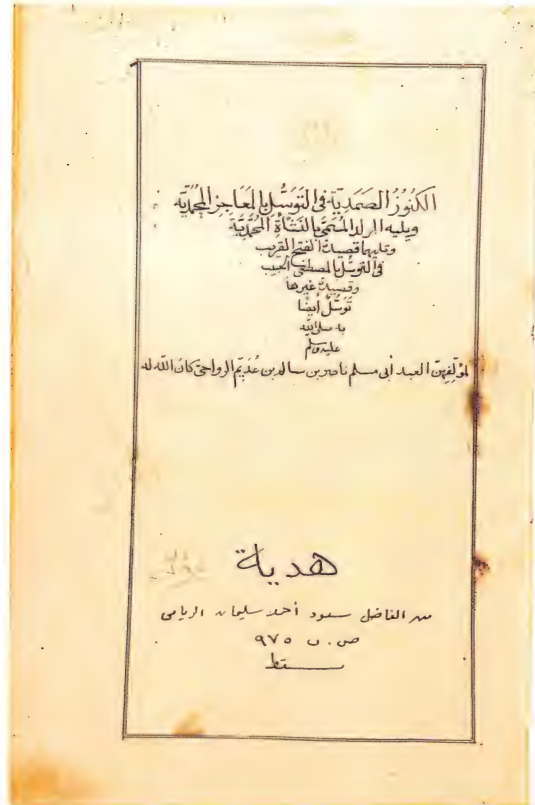 الكُنُوزُ الصَمَدِيّة في التَوَسُّل بالمَعَاجِزِ المحُمَديَّه
ويليه المولد المُسَمَّى بالنَشأةِ المُحَمَّديَّة
وتليهما قصيدة الفتح القريب
في التوسُّل بالمصطفى الحبيب
وقصيدة غيرها
تَوَسُّلٌ أيضًا
به صلى الله
عليه وسلم
لمؤلِّفهنّ العبد أبى مسلم ناصر بن سالم بن عُدَيِّم الرواحي كان الله له
هدية
من الفاضل سعود أحمد سليمان الريامي
ص. ب ٩٧٥
مسقط